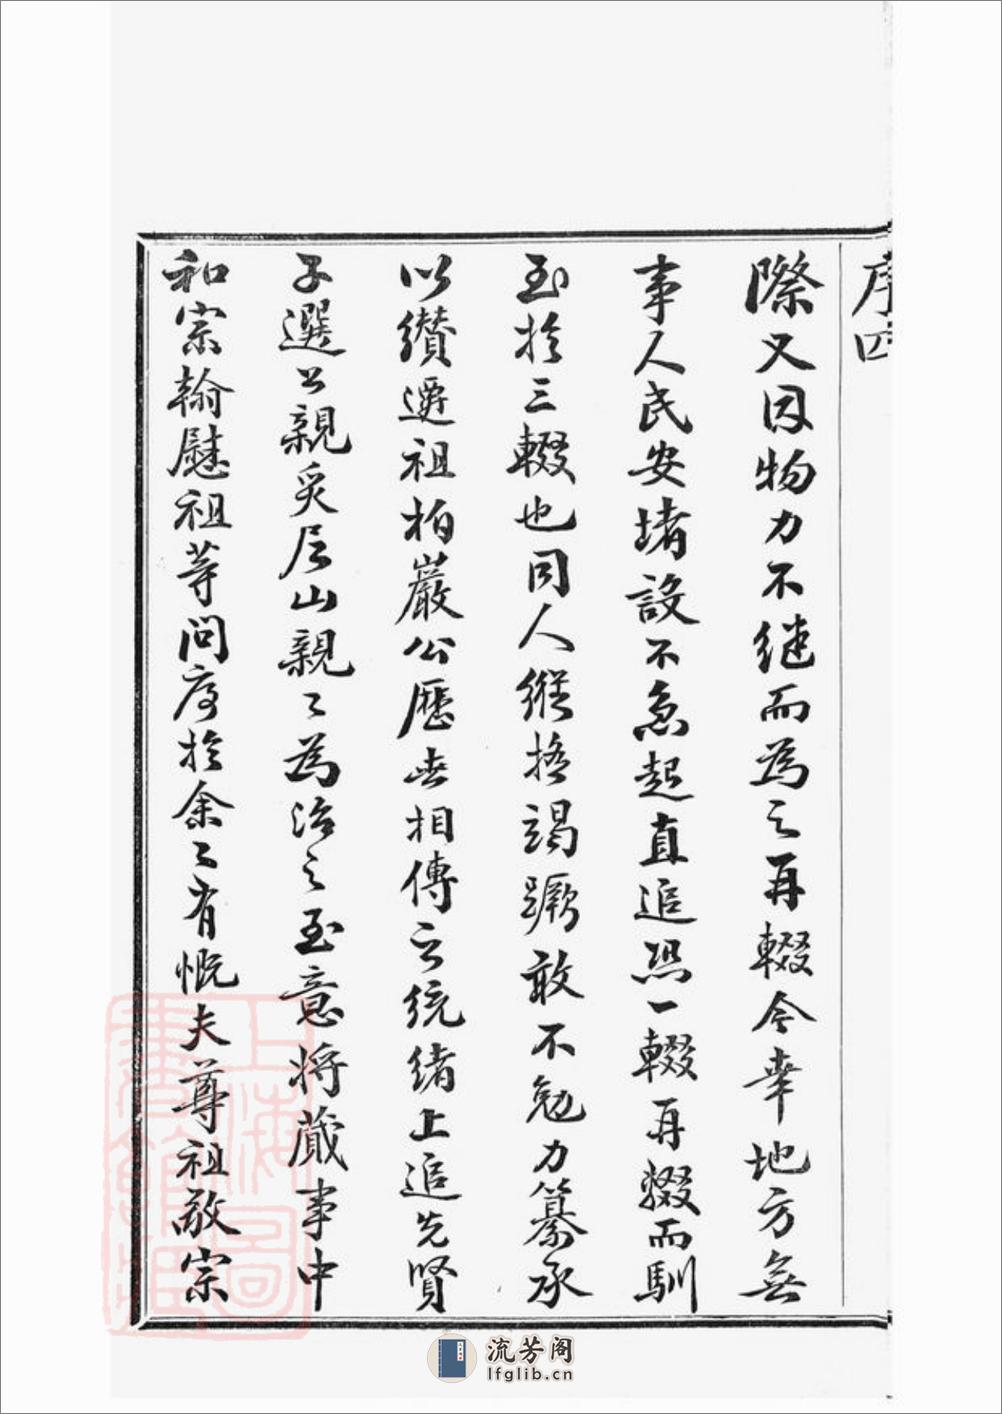 序四
際又因物力不继而為之再輟今幸地方無
事人民安堵設不急起直追恐一輟再輟而馴
至於三輟也同人縱猪竭蹶敢不勉力纂承
以纘遷祖柏巖公歷世相傳之統緒上追先賢
子選公親炙尼山親〻為治之至意將蕆事中
和宗翰慰祖等問序於余〻有慨夫尊祖敬宗
上海圖書館藏
流芳阁
lfglib.cn